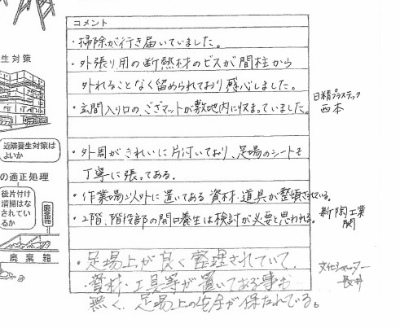 コメント
・掃除が行き届いていました。
・外張り用の断熱材のビスが間柱から
外れることなく留められており感心しました。
・玄関入り口のござマットが敷地内に収まっていました。
日精プラステック
西本
・外周がきれいに片付いており、足場のシートも
丁寧に張ってある。
・作業場以外に置いてある資材・道具が整頓されている。
・2階、階段部の開口養生は検討が必要と思われる。
新関工業
関
・足場上が良く管理されていて、
・資材・工具等が置いてある事も
無く、足場上の安全が保たれている。
文化シャッター
長井
生対策
近隣養生対策は
よいか
の適正処理
後片付け
清掃はな
されてい
るか
廃棄箱